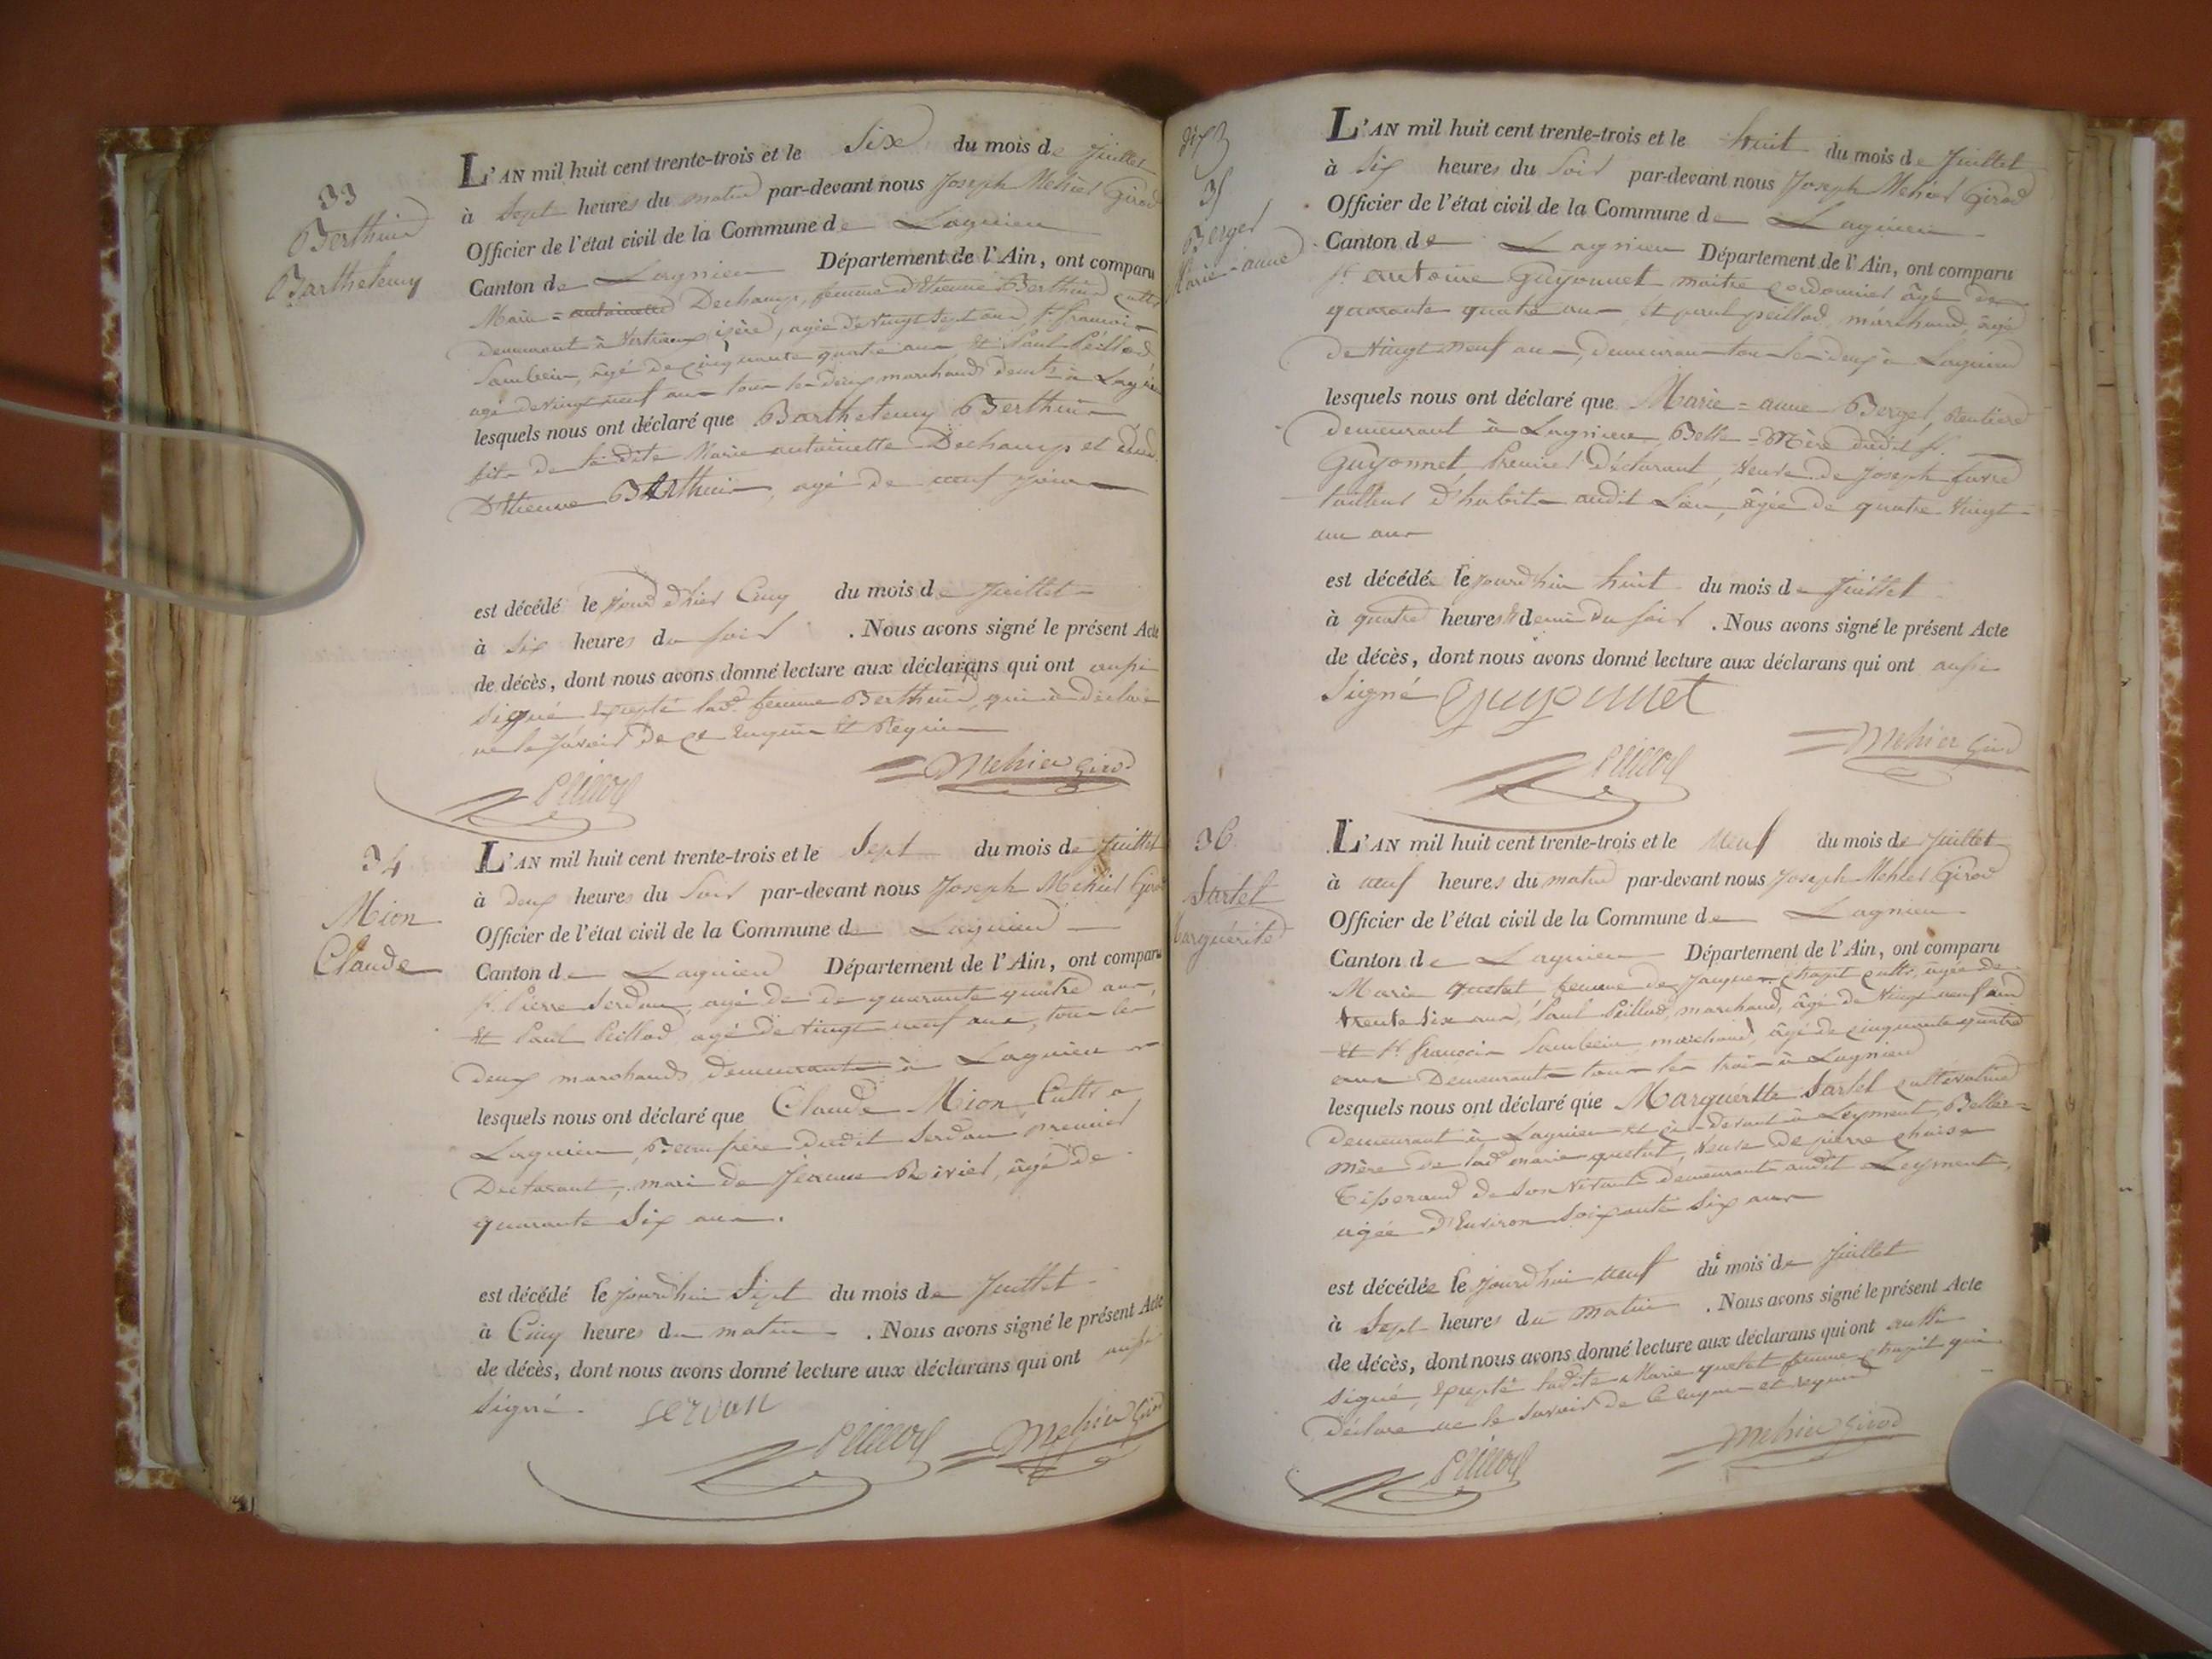 33
Berthuin
Barthelemy
L'AN mil huit cent trente-trois et le Six du mois de Juillet
à Sept heures du matin par-devant nous Joseph Mehier Girod
Officier de l'état civil de la Commune de Lagnieu
Canton de Lagnieu Département de l'Ain, ont comparu
Marie = antoinette Dechamp, femme d'Etienne Berthuin cultr
demeurant à isère, agée de vingt sept ans, sr françois
Sambein, âgé de cinquante quatre ans Et Paul Peillod
agé de vingt neuf ans tous les deux marchands demts à Lagnieu
lesquels nous ont déclaré que Barthelemy Berthuin
fils de la dite Marie antoinette Dechamp et dud.
D'Etienne Berthuin, agé de neuf jours
est décédé le jour d'hier Cinq du mois de Juillet
à Six heures du Soir . Nous avons signé le présent Acte
de décès, dont nous avons donné lecture aux déclarans qui ont aussi
signé Excepté lad. femme Berthuin, qui a déclaré
ne le savoir de ce Enquis Et Requis
Peillod
Mehier Girod
34
Mion
Claude
L'AN mil huit cent trente-trois et le Sept du mois de Juillet
à deux heures du Soir par-devant nous Joseph Mehier Girod
Officier de l'état civil de la Commune de Lagnieu
Canton de Lagnieu Département de l'Ain, ont comparu
sr Pierre Serdon, agé de de quarante quatre ans,
Et Paul Peillod agé de vingt neuf ans, tous les
deux marchands demeurants à Lagnieu
lesquels nous ont déclaré que Claude Mion, Cultr a
Lagnieu, Beaufrère dudit Serdon premier
Declarant, mari de Jeanne Rivier, âgé de
quarante Six ans.
est décédé le jourdhui Sept du mois de Juillet
à Cinq heures du matin . Nous avons signé le présent Acte
de décès, dont nous avons donné lecture aux déclarans qui ont aussi
Signé. serdon
Peillod
Mehier Girod
35
Berger
Marie = anne
L'AN mil huit cent trente-trois et le huit du mois de Juillet
à Six heures du Soir par-devant nous Joseph Mehier Girod
Officier de l'état civil de la Commune de Lagnieu
Canton de Lagnieu Département de l'Ain, ont comparu
sr antoine Guyonnet maitre cordonnier âgé de
quarante quatre ans Et paul peillod, marchand, âgé
de vingt neuf ans, demeurans tous les deux à Lagnieu
lesquels nous ont déclaré que Marie = anne Berger, Rentière
demeurant à Lagnieu, Belle = Mère dudit sr.
Guyonnet, Premier Déclarant, Veuve de Joseph favre
tailleur d'habits audit Lieu, âgée de quatre Vingt
un ans
est décédée le jourd'hui huit du mois de Juillet
à quatre heures Et demie du soir . Nous avons signé le présent Acte
de décès, dont nous avons donné lecture aux déclarans qui ont aussi
Signé Guyonnet
Peillod
Mehier Girod
36
Sartel
Marguerite
L'AN mil huit cent trente-trois et le neuf du mois de Juillet
à neuf heures du matin par-devant nous Joseph Mehier Girod
Officier de l'état civil de la Commune de Lagnieu
Canton de Lagnieu Département de l'Ain, ont comparu
Marie quelet femme de Jacques cultr, agée de
trente six ans, Paul Peillod, marchand, âgé de vingt neuf ans
Et sr françois Sambein, marchand, âgé de cinquante quatre
ans Demeurants tous les trois à Lagnieu
lesquels nous ont déclaré que Marguérite Sartel cultivatrice
Demeurant à Lagnieu et ci-devant à Leyment, Belle =
mère de lad marie quelet, Veuve de pierre
Tisserand de son vivant demeurant audit Leyment,
agée d'Environ soixante Six ans
est décédée le jourd'hui neuf du mois de Juillet
à Sept heures du matin . Nous avons signé le présent Acte
de décès, dont nous avons donné lecture aux déclarans qui ont aussi
signé, Excepté ladite Marie quelet femme qui
Déclare ne le Savoir de ce enquis et requis
Peillod
Mehier Girod